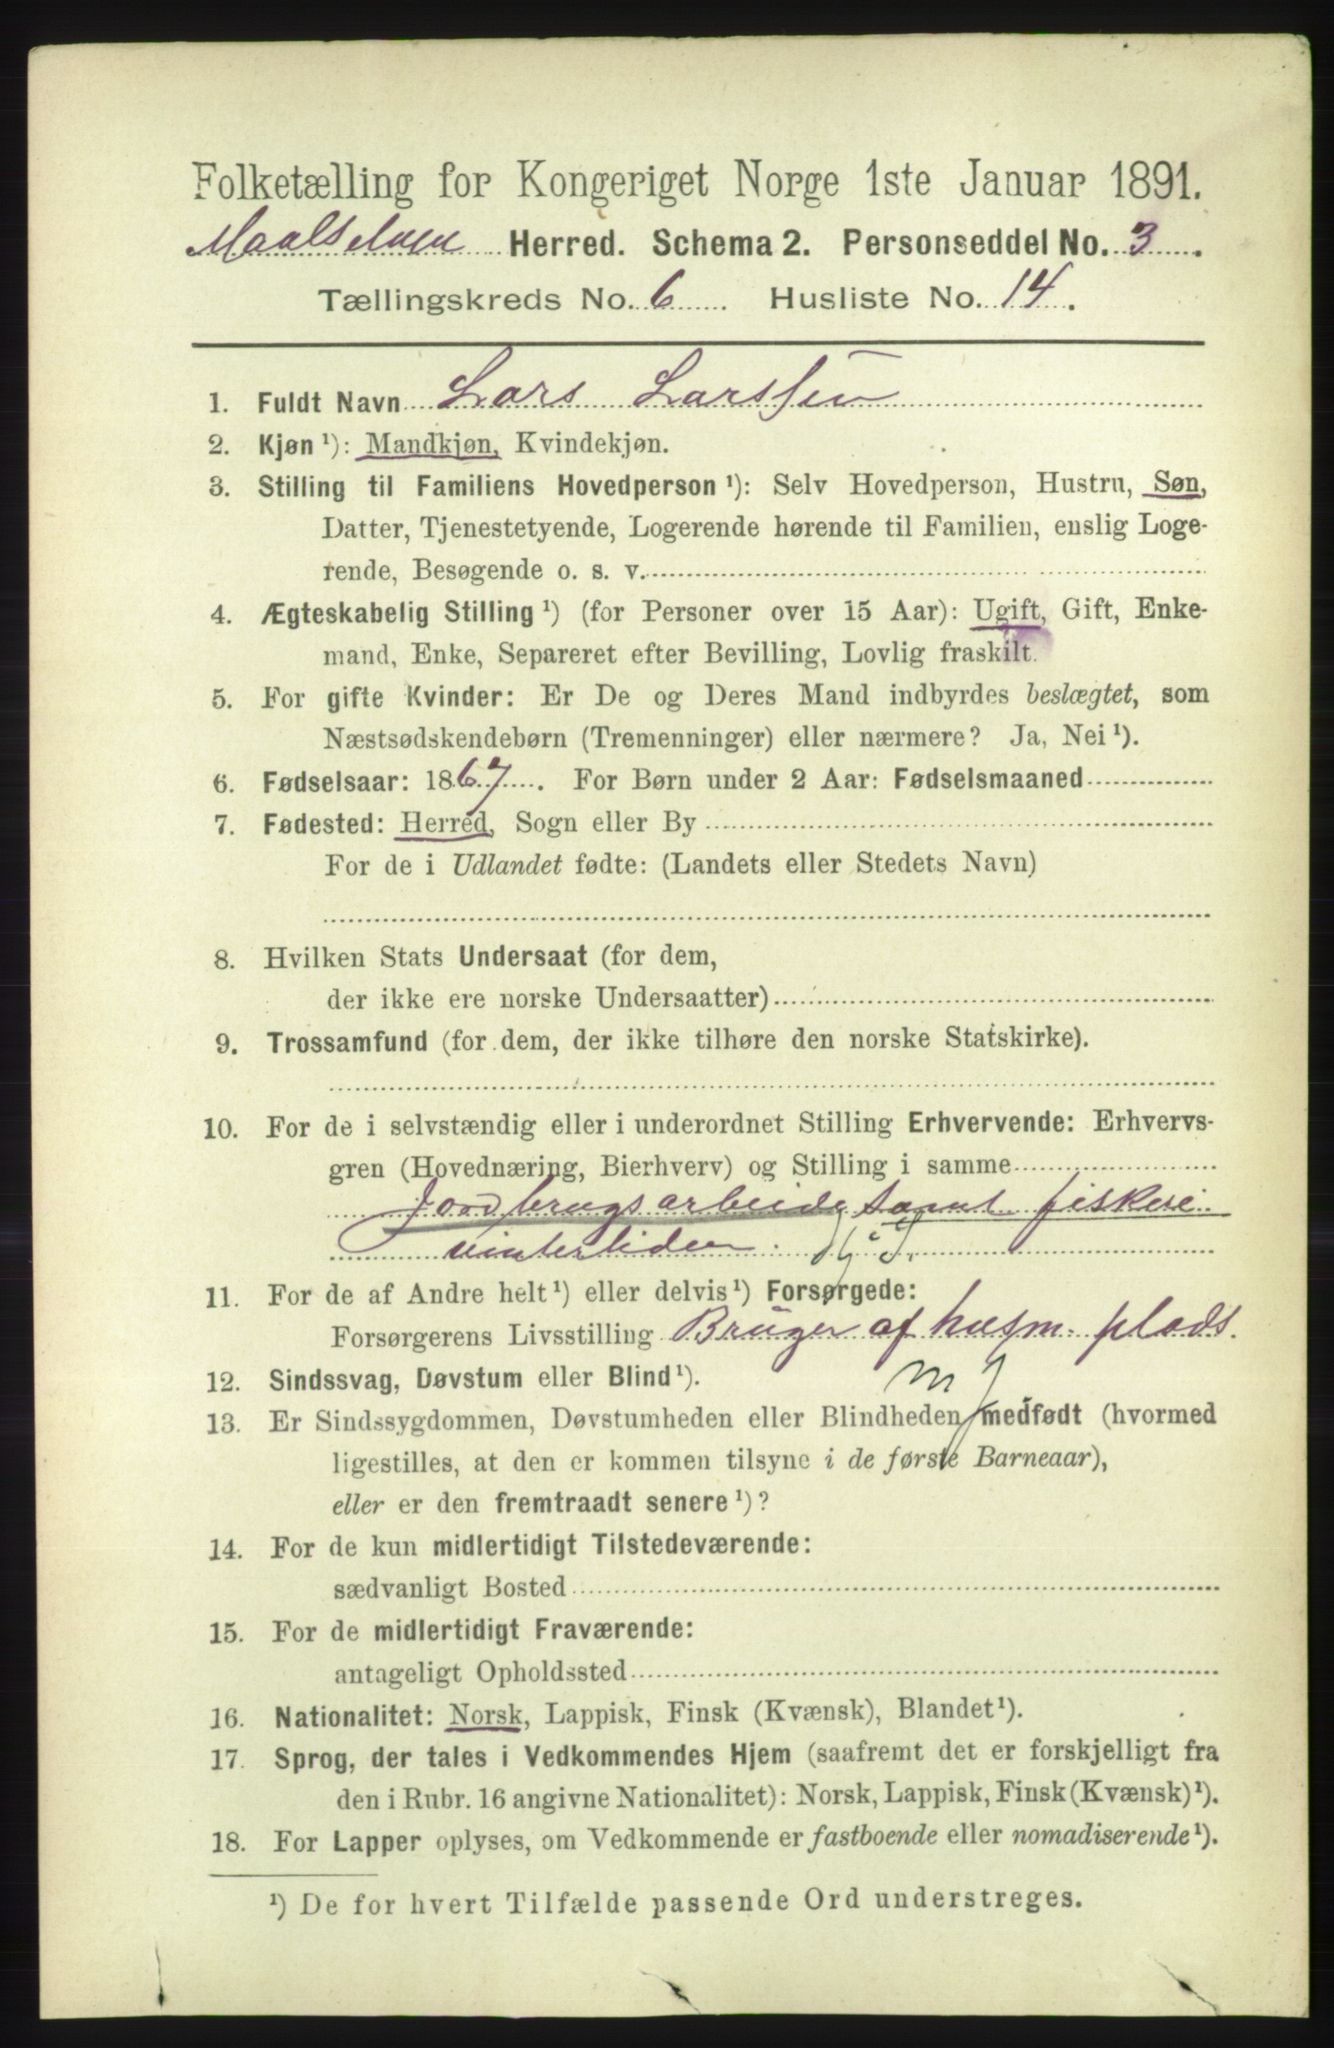 Folketælling for Kongeriget Norge 1ste Januar 1891.
Maalselven Herred. Schema 2. Personseddel No. 3.
Tællingskreds No. 6 Husliste No. 14.
1. Fuldt Navn Lars Larssen
2. Kjøn ¹): Mandkjøn, Kvindekjøn.
3. Stilling til Familiens Hovedperson ¹): Selv Hovedperson, Hustru, Søn,
Datter, Tjenestetyende, Logerende hørende til Familien, enslig Loge-
rende, Besøgende o. s. v.
4. Ægteskabelig Stilling ¹) (for Personer over 15 Aar): Ugift, Gift, Enke-
mand, Enke, Separeret efter Bevilling, Lovlig fraskilt.
5. For gifte Kvinder: Er De og Deres Mand indbyrdes beslægtet, som
Næstsødskendebørn (Tremenninger) eller nærmere? Ja, Nei ¹).
6. Fødselsaar: 1867. For Børn under 2 Aar: Fødselsmaaned
7. Fødested: Herred, Sogn eller By
For de i Udlandet fødte: (Landets eller Stedets Navn)
8. Hvilken Stats Undersaat (for dem,
der ikke ere norske Undersaatter)
9. Trossamfund (for dem, der ikke tilhøre den norske Statskirke).
10. For de i selvstændig eller i underordnet Stilling Erhvervende: Erhvervs-
gren (Hovednæring, Bierhverv) og Stilling i samme
Jordbrugsarbeide samt fiskeri
vintertiden.
11. For de af Andre helt ¹) eller delvis ¹) Forsørgede:
Forsørgerens Livsstilling Bruger af husm. plads.
12. Sindssvag, Døvstum eller Blind ¹).
13. Er Sindssygdommen, Døvstumheden eller Blindheden medfødt (hvormed
ligestilles, at den er kommen tilsyne i de første Barneaar),
eller er den fremtraadt senere ¹)?
14. For de kun midlertidigt Tilstedeværende:
sædvanligt Bosted
15. For de midlertidigt Fraværende:
antageligt Opholdssted
16. Nationalitet: Norsk, Lappisk, Finsk (Kvænsk), Blandet ¹).
17. Sprog, der tales i Vedkommendes Hjem (saafremt det er forskjelligt fra
den i Rubr. 16 angivne Nationalitet): Norsk, Lappisk, Finsk (Kvænsk) ¹).
18. For Lapper oplyses, om Vedkommende er fastboende eller nomadiserende ¹).
¹) De for hvert Tilfælde passende Ord understreges.